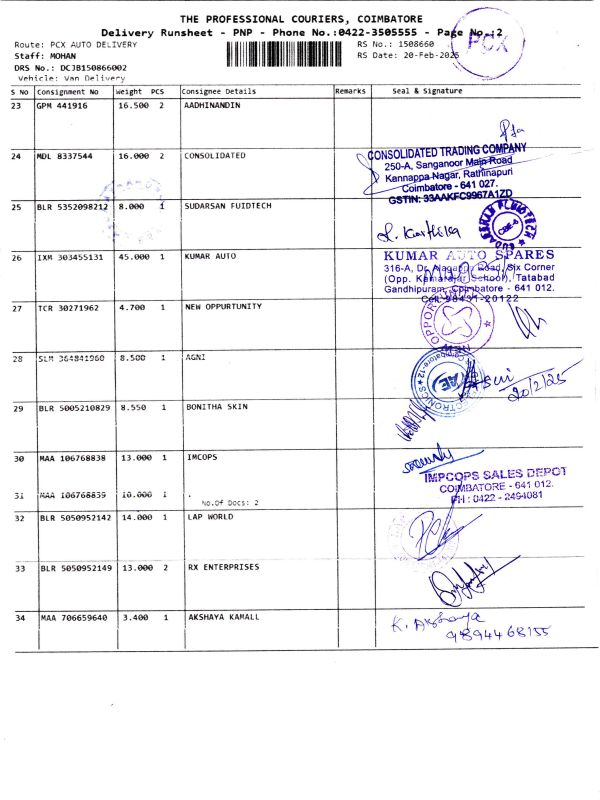 THE PROFESSIONAL COURIERS, COIMBATORE
Delivery Runsheet - PNP - Phone No.:0422-3505555 - Page No.:2
PCX
Route: PCX AUTO DELIVERY
RS No.: 1508660
Staff: MOHAN
RS Date: 20-Feb-2025
DRS No.: DCJB150866002
Vehicle: Van Delivery
S No Consignment No Weight PCS Consignee Details Remarks Seal & Signature
23 GPM 441916 16.500 2 AADHINANDIN
24 MDL 8337544 16.000 2 CONSOLIDATED
CONSOLIDATED TRADING COMPANY
250-A, Sanganoor Main Road
Kannappa Nagar, Rathinapuri
Coimbatore - 641 027.
GSTIN: 33AAKFC9967A1ZD
25 BLR 5352098212 8.000 1 SUDARSAN FUIDTECH
SUDARSHAN FLUIDTECH
CBE-6
S. Karthika
26 IXM 303455131 45.000 1 KUMAR AUTO
KUMAR AUTO SPARES
316-A, Dr. Alagappa Road, Six Corner
(Opp. Kamarajar School), Tatabad
Gandhipuram, Coimbatore - 641 012.
Cell: 98431-20122
27 TCR 30271962 4.700 1 NEW OPPURTUNITY
28 SLM 364841960 8.500 1 AGNI
20/2/25
29 BLR 5005210829 8.550 1 BONITHA SKIN
30 MAA 106768838 13.000 1 IMCOPS
IMPCOPS SALES DEPOT
COIMBATORE - 641 012.
PH : 0422 - 2494081
31 MAA 106768839 10.000 1 .
No.Of Docs: 2
32 BLR 5050952142 14.000 1 LAP WORLD
33 BLR 5050952149 13.000 2 RX ENTERPRISES
34 MAA 706659640 3.400 1 AKSHAYA KAMALL
K. Akshaya
9894468155